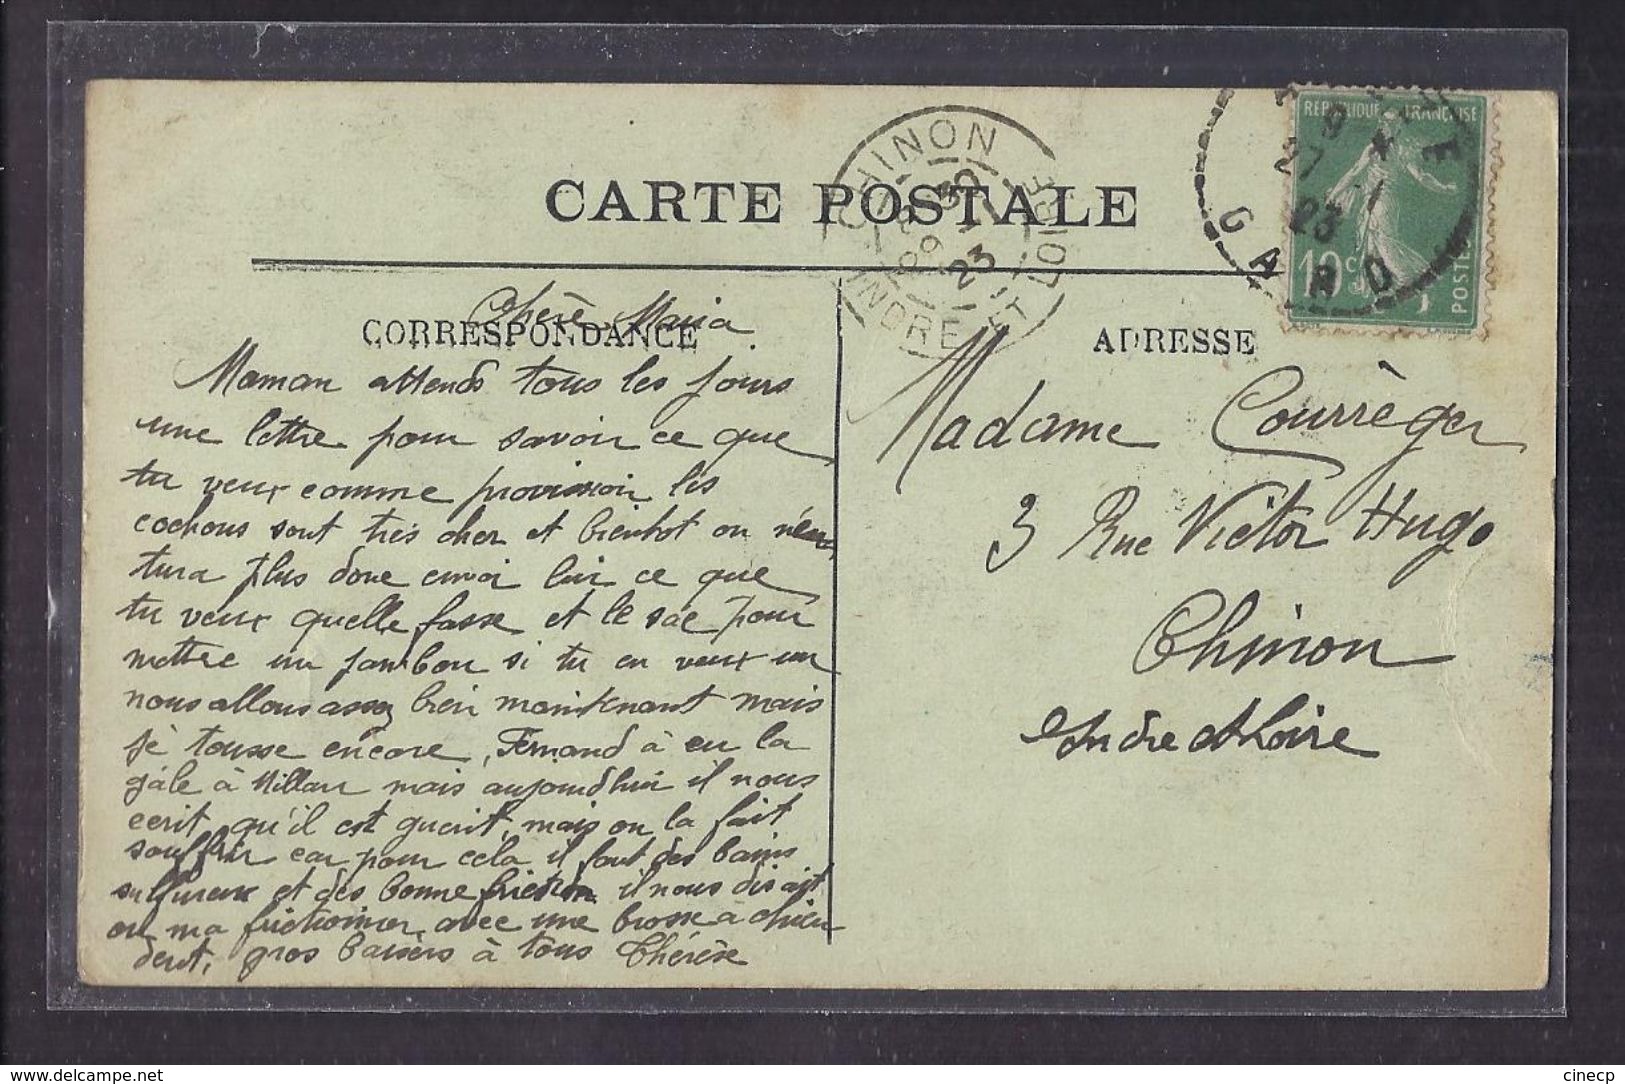 CARTE POSTALE
CHINON
8 30
29 1
23
INDRE ET LOIRE
27 1
23
GARD
REPUBLIQUE FRANÇAISE
10 c
POSTES
CORRESPONDANCE
ADRESSE
Chère Maria
Maman attends tous les jours
une lettre pour savoir ce que
tu veux comme provission les
cochons sont très cher et bientot on n'en
tura plus donc envoi lui ce que
tu veux quelle fasse et le sac pour
mettre un jambon si tu en veux un
nous allons assez bien maintenant mais
je tousse encore, Fernand à eu la
gale à Millau mais aujourdhui il nous
ecrit qu'il est guerit, mais on la fait
souffrir car pour cela il faut des bains
sulfureux et des bonne friction il nous disait
on ma frictionner avec une brosse à chien
dent, gros baisers à tous Thérèse
Madame Courrèges
3 Rue Victor Hugo
Chinon
Indre et Loire
www.delcampe.net
cinecp